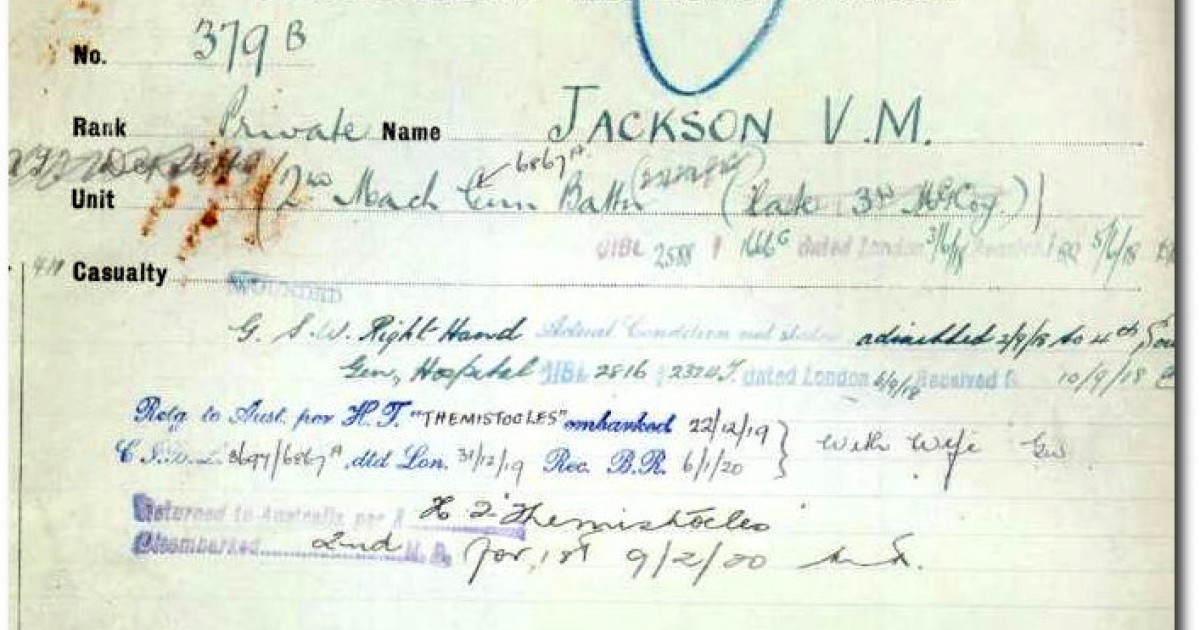 No. 379 B
Rank Private Name JACKSON V.M.
6867 A
Unit (2nd Mach Gun Battn (late 3rd
2588 1666 dated London 3/6/18 5/6/18
Casualty
WOUNDED
G. S. W. Right Hand Actual Condition not stated admitted 2/9/18 to 4th
Gen, Hospital 2816 dated London 6/9/18 Received 10/9/18
Retg to Aust. per H.T. "THEMISTOCLES" embarked 22/12/19 } With Wife
3697/6867 A dtd Lon. 31/12/19 Rec. B.R. 6/1/20
Returned to Australia per H T Themistocles
Disembarked 2nd M. D. for 1st 9/2/20